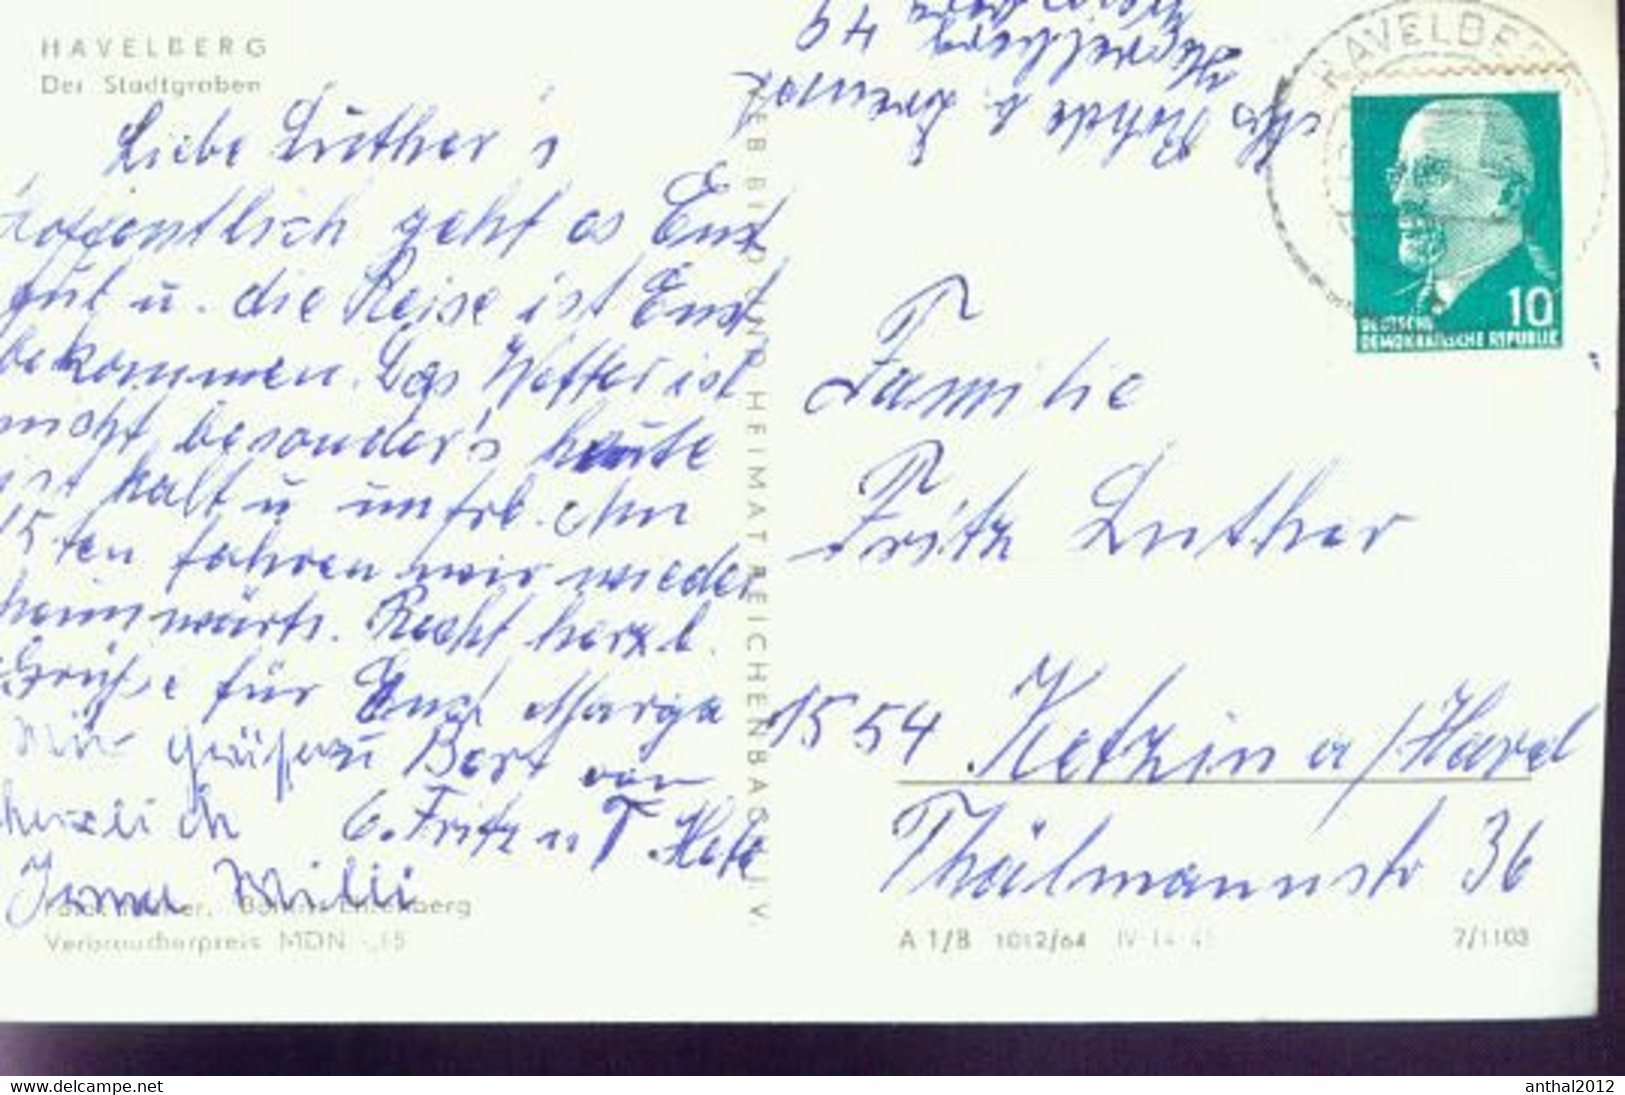 HAVELBERG
Der Stadtgraben
Liebe Luther's
hoffentlich geht es Euch
gut u. die Reise ist Euch
bekommen. Das Wetter ist
nicht besonder's heute
ist kalt u unfrl. Am
15ten fahren wir wieder
heimwärts. Recht herzl.
Grüße für Euch Marga
Wir grüßen Bert von
herzlich G. Fritz u T. Hete
Willi
Verbraucherpreis MDN -,15
VEB BILD UND HEIMAT REICHENBACH I.V.
Havelberg
49
HAVELBERG
10
DEUTSCHE
DEMOKRATISCHE REPUBLIK
Familie
Fritz Luther
1554 Ketzin a/Havel
Thälmannstr 36
A 1/B 1012/64 IV-14-45 7/1103
www.delcampe.net
anthal2012